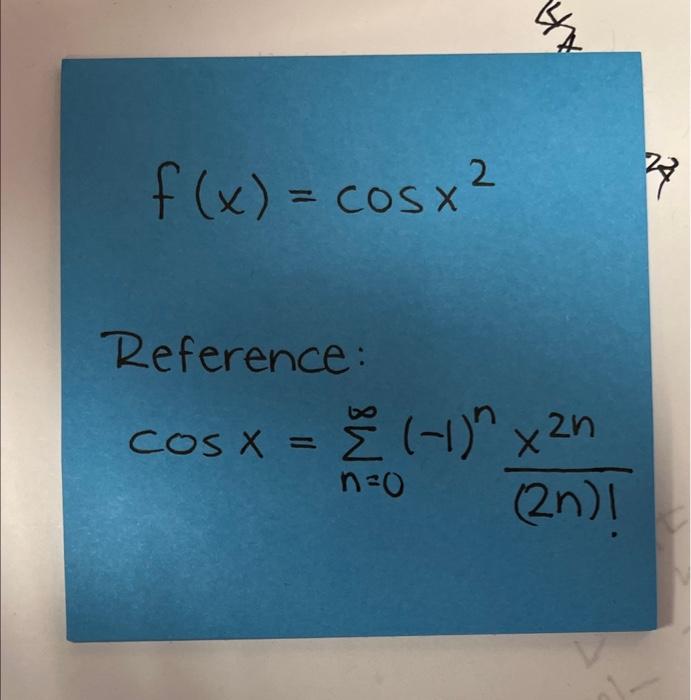 f(x) = cos x²
Reference:
cos x = ∞∑n=0 (-1)ⁿ x²ⁿ/(2n)!